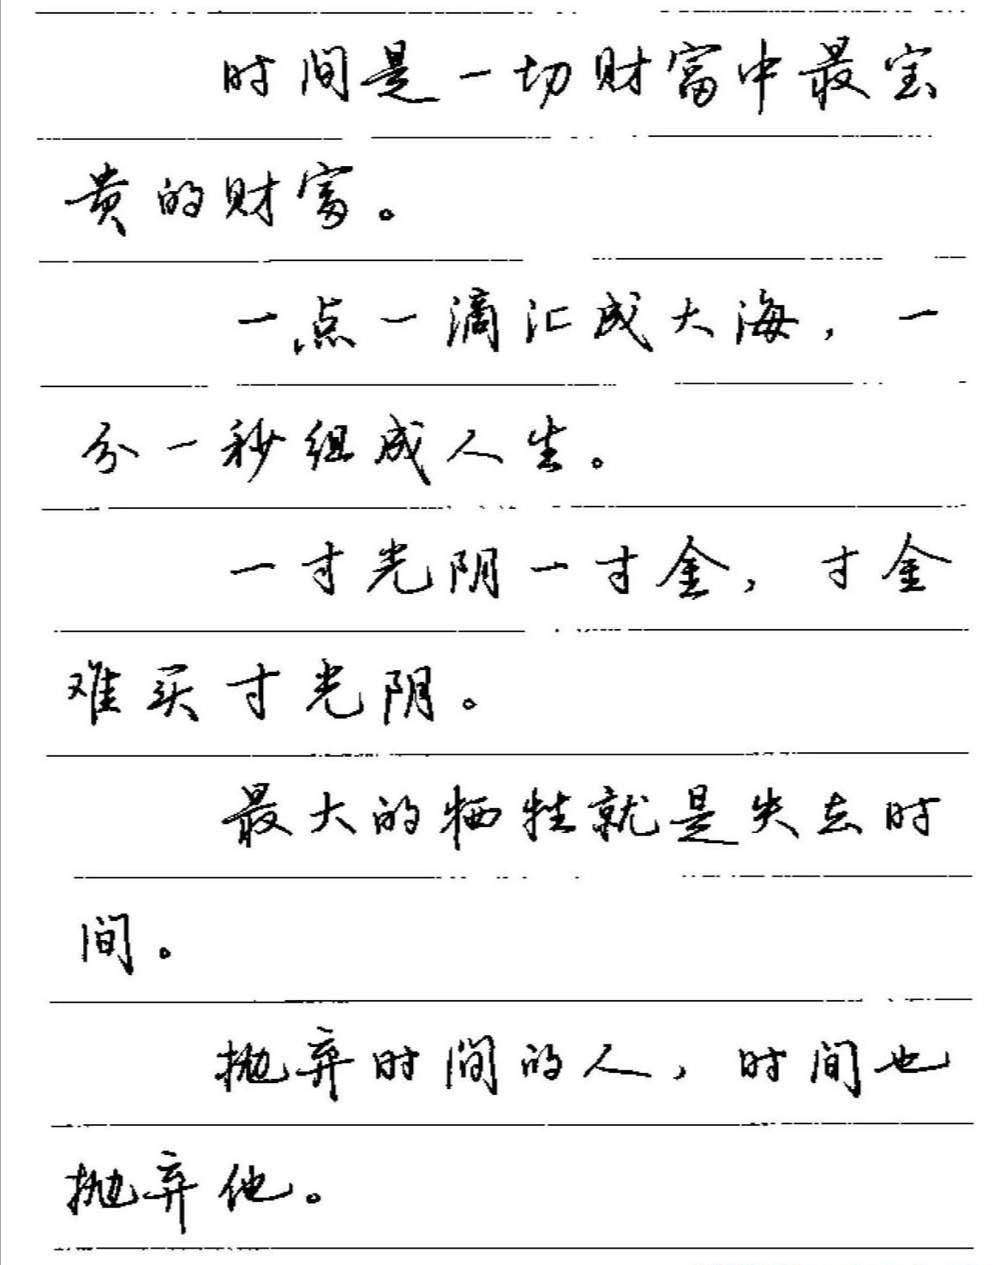 时间是一切财富中最宝
贵的财富。
一点一滴汇成大海，一
分一秒组成人生。
一寸光阴一寸金，寸金
难买寸光阴。
最大的牺牲就是失去时
间。
抛弃时间的人，时间也
抛弃他。